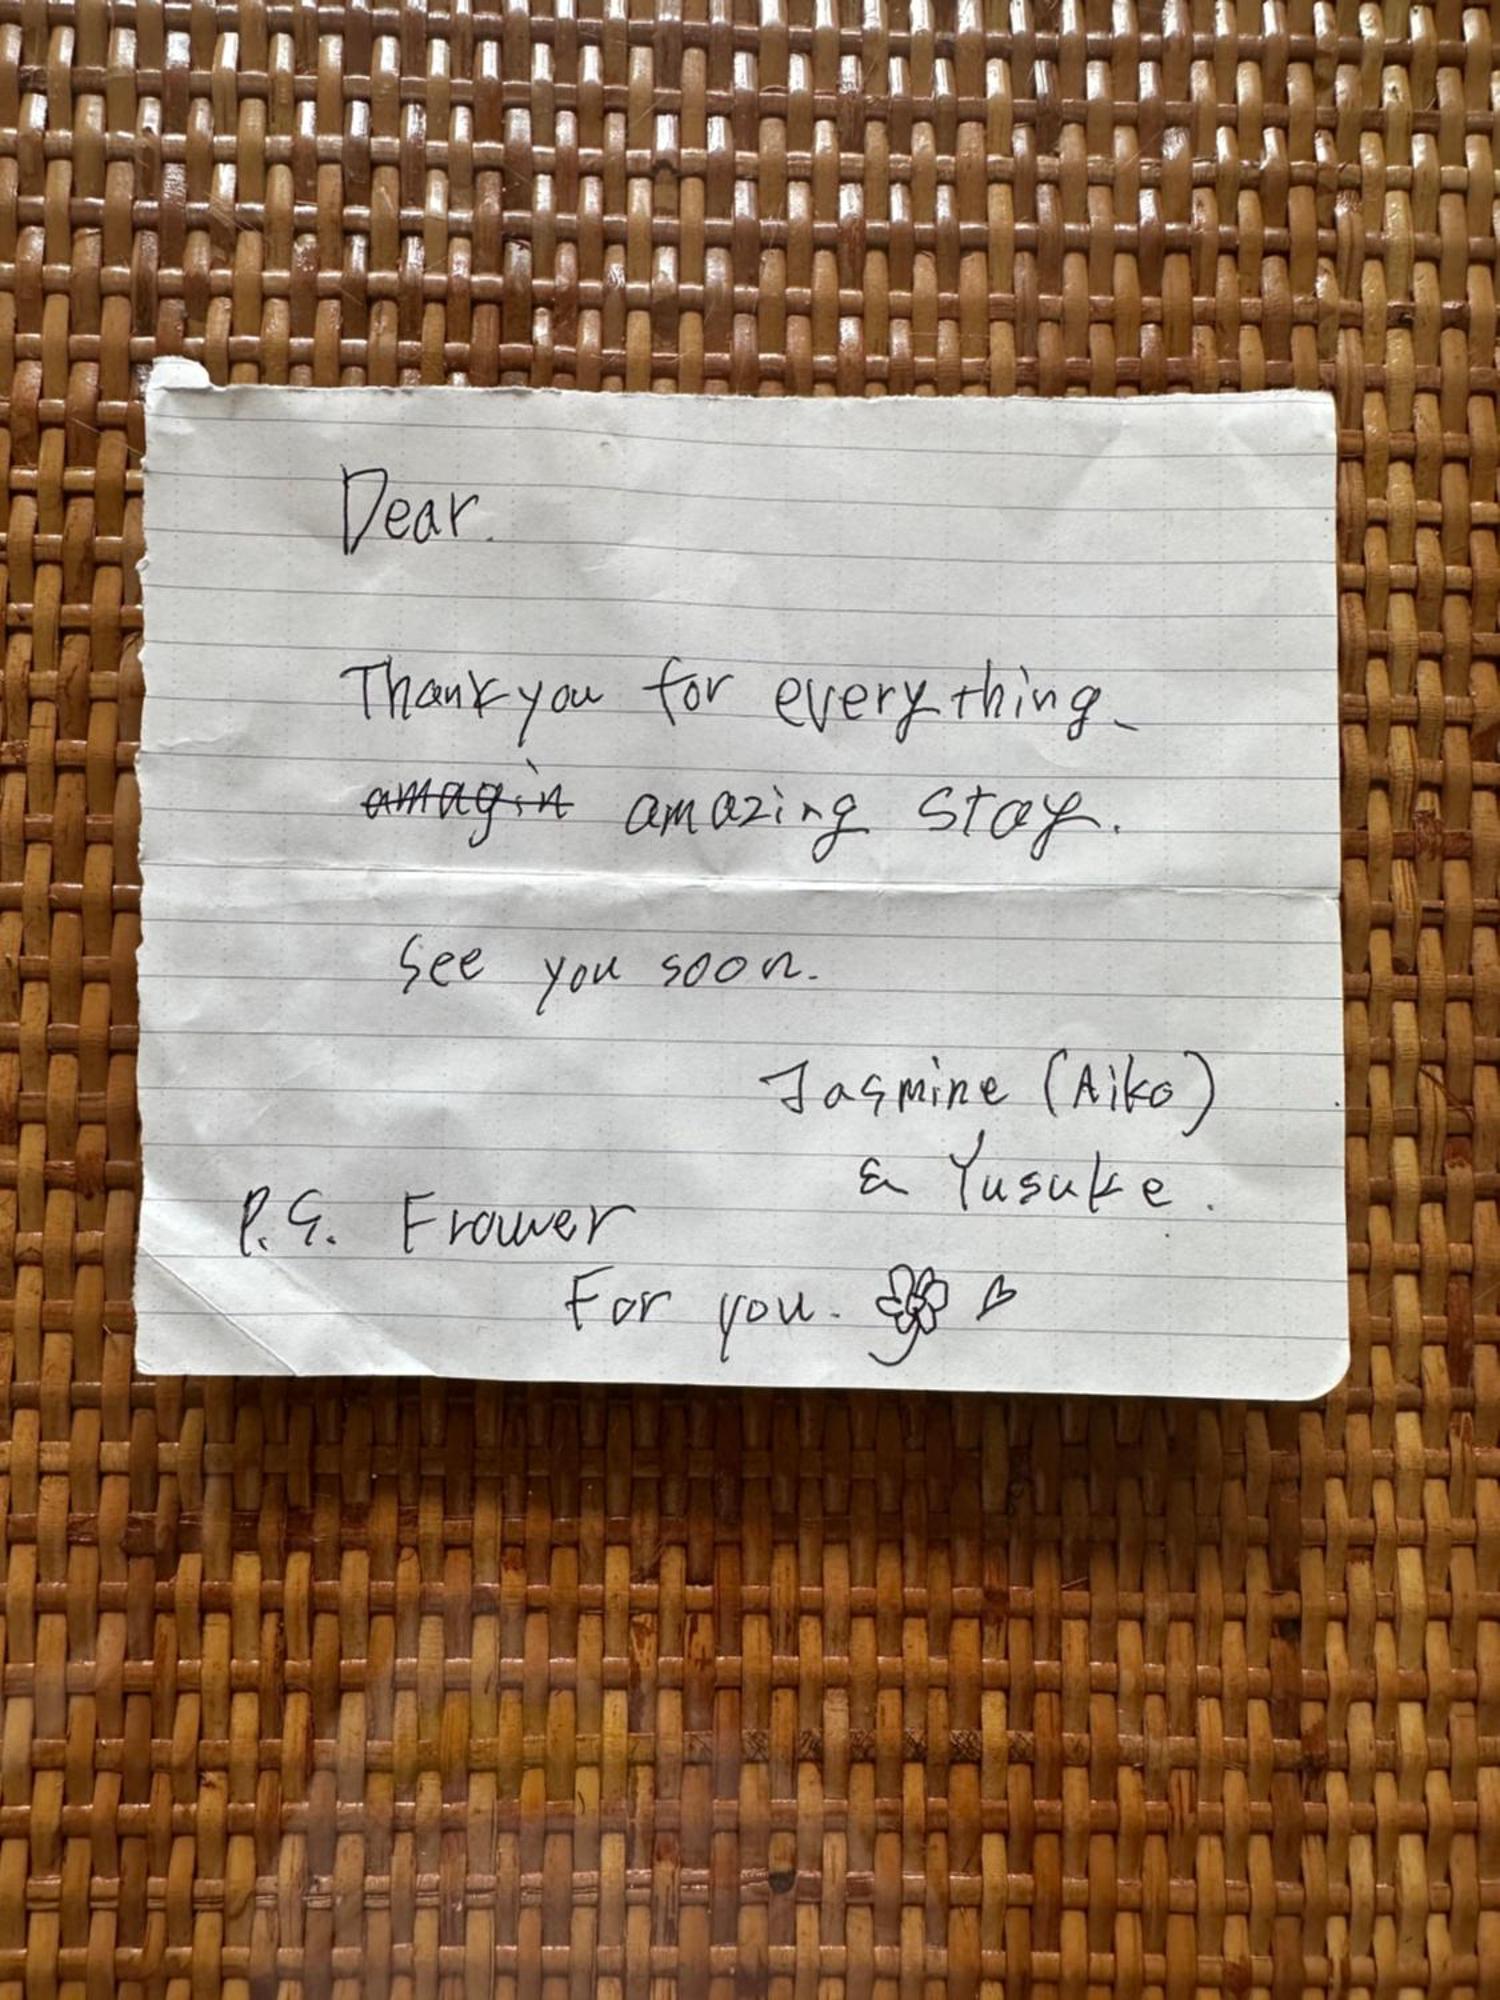 Dear.
Thank you for everything.
amagin amazing stay.
See you soon.
Jasmine (Aiko)
& Yusuke.
P.S. Frower
For you.